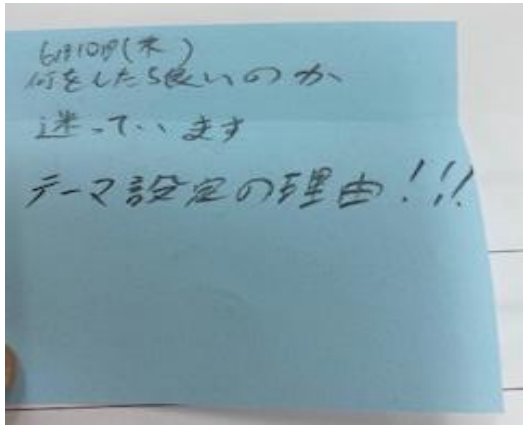 6月10日(木)
何をしたら良いのか
迷っています
テーマ設定の理由!!!